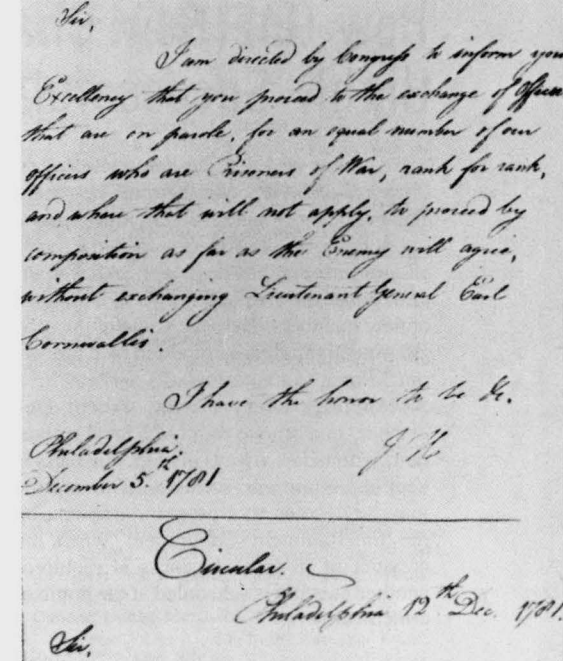 Sir,
I am directed by Congress to inform your
Excellency that you proceed to the exchange of Officers
that are on parole, for an equal number of our
officers who are Prisoners of War, rank for rank,
and where that will not apply, to proceed by
composition as far as the Enemy will agree,
without exchanging Lieutenant General Earl
Cornwallis.
I have the honor to be &c.
J H
Philadelphia.
December 5.th 1781
Circular.
Philadelphia 12th Dec. 1781.
Sir,